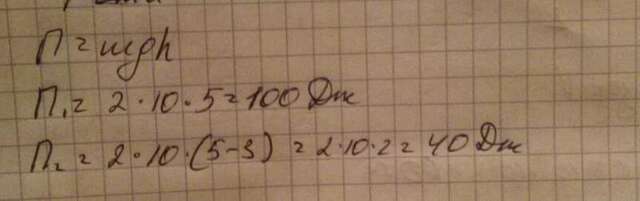 П = mgh
П₁ = 2 · 10 · 5 = 100 Дж
П₂ = 2 · 10 · (5-3) = 2·10·2 = 40 Дж